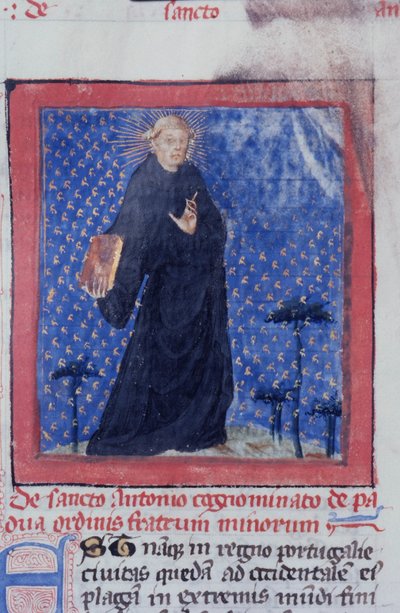 : de sancto an
De sancto Antonio cognominato de pa
dua ordinis fratrum minorum
EST nāq̄ in regno portugalie
civitas quedam ad occidentalē ei⁹
plagā in extremis mūdi fini